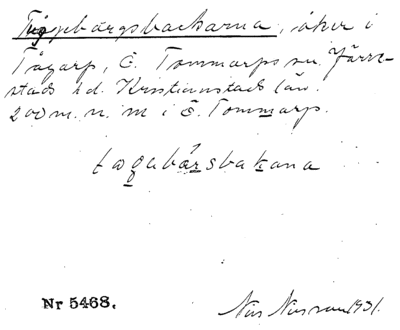 Tåggebårgsbackarna, åker i
Tågarp, Ö. Tommarps sn. Järre-
stads hd. Kristianstads län.
200 m. n. m i Ö. Tommarp.
tagebårsbakana
Nr 5468.
Nils Nilsson 1931.